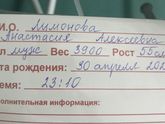 И.О. Лымонова
Анастасия Алексеевна
муж Вес 3900 Рост 55см
та рождения: 30 апреля 202
емя: 23:10
полнительная информация: